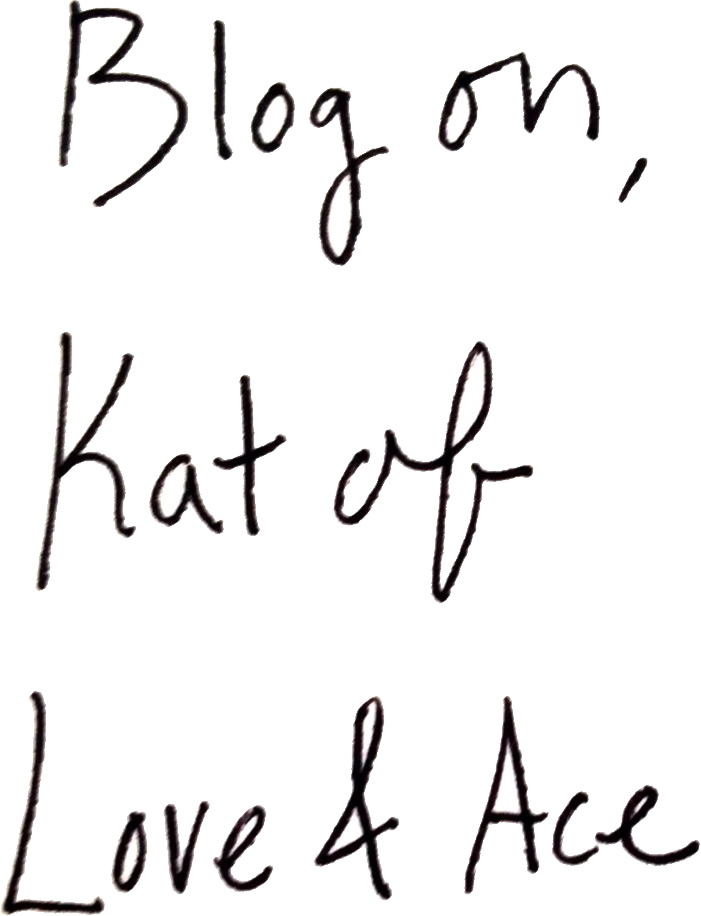 Blog on,
Kat of
Love & Ace